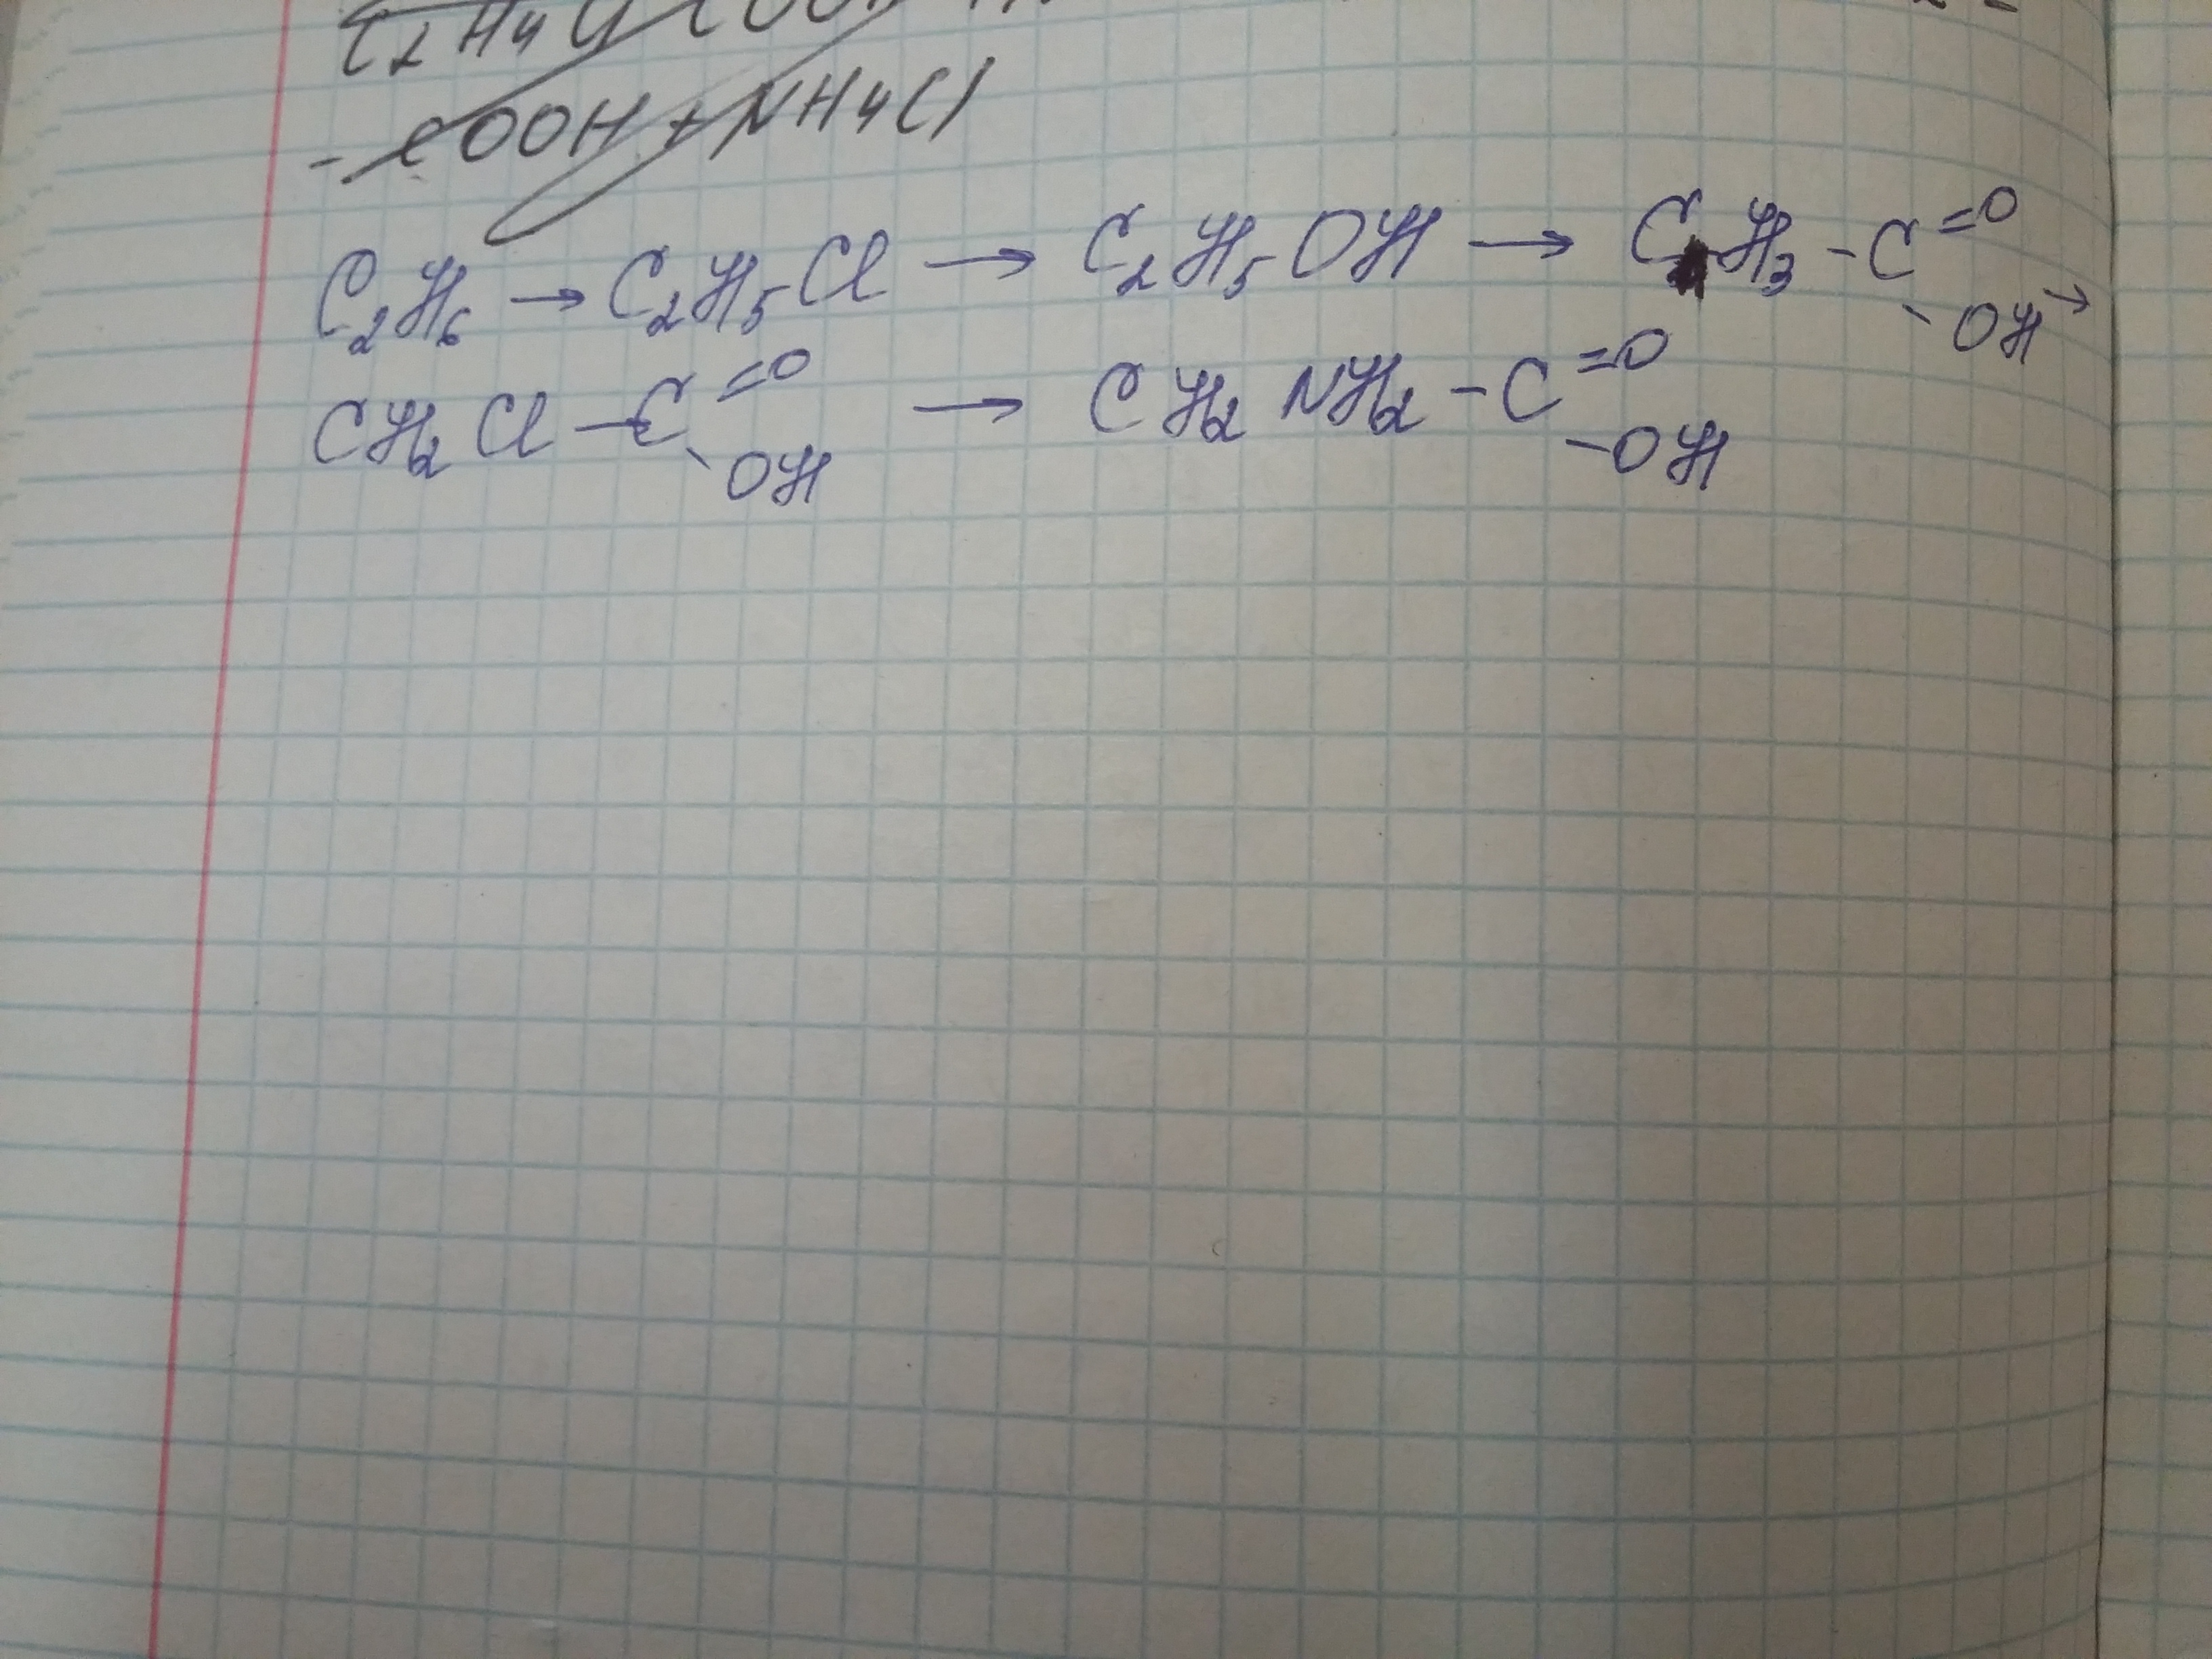 C₂H₄
-COOH + NH₄Cl
C₂H₆ → C₂H₅Cl → C₂H₅OH → CH₃-C=O-OH →
CH₂Cl-C=O-OH → CH₂NH₂-C=O-OH